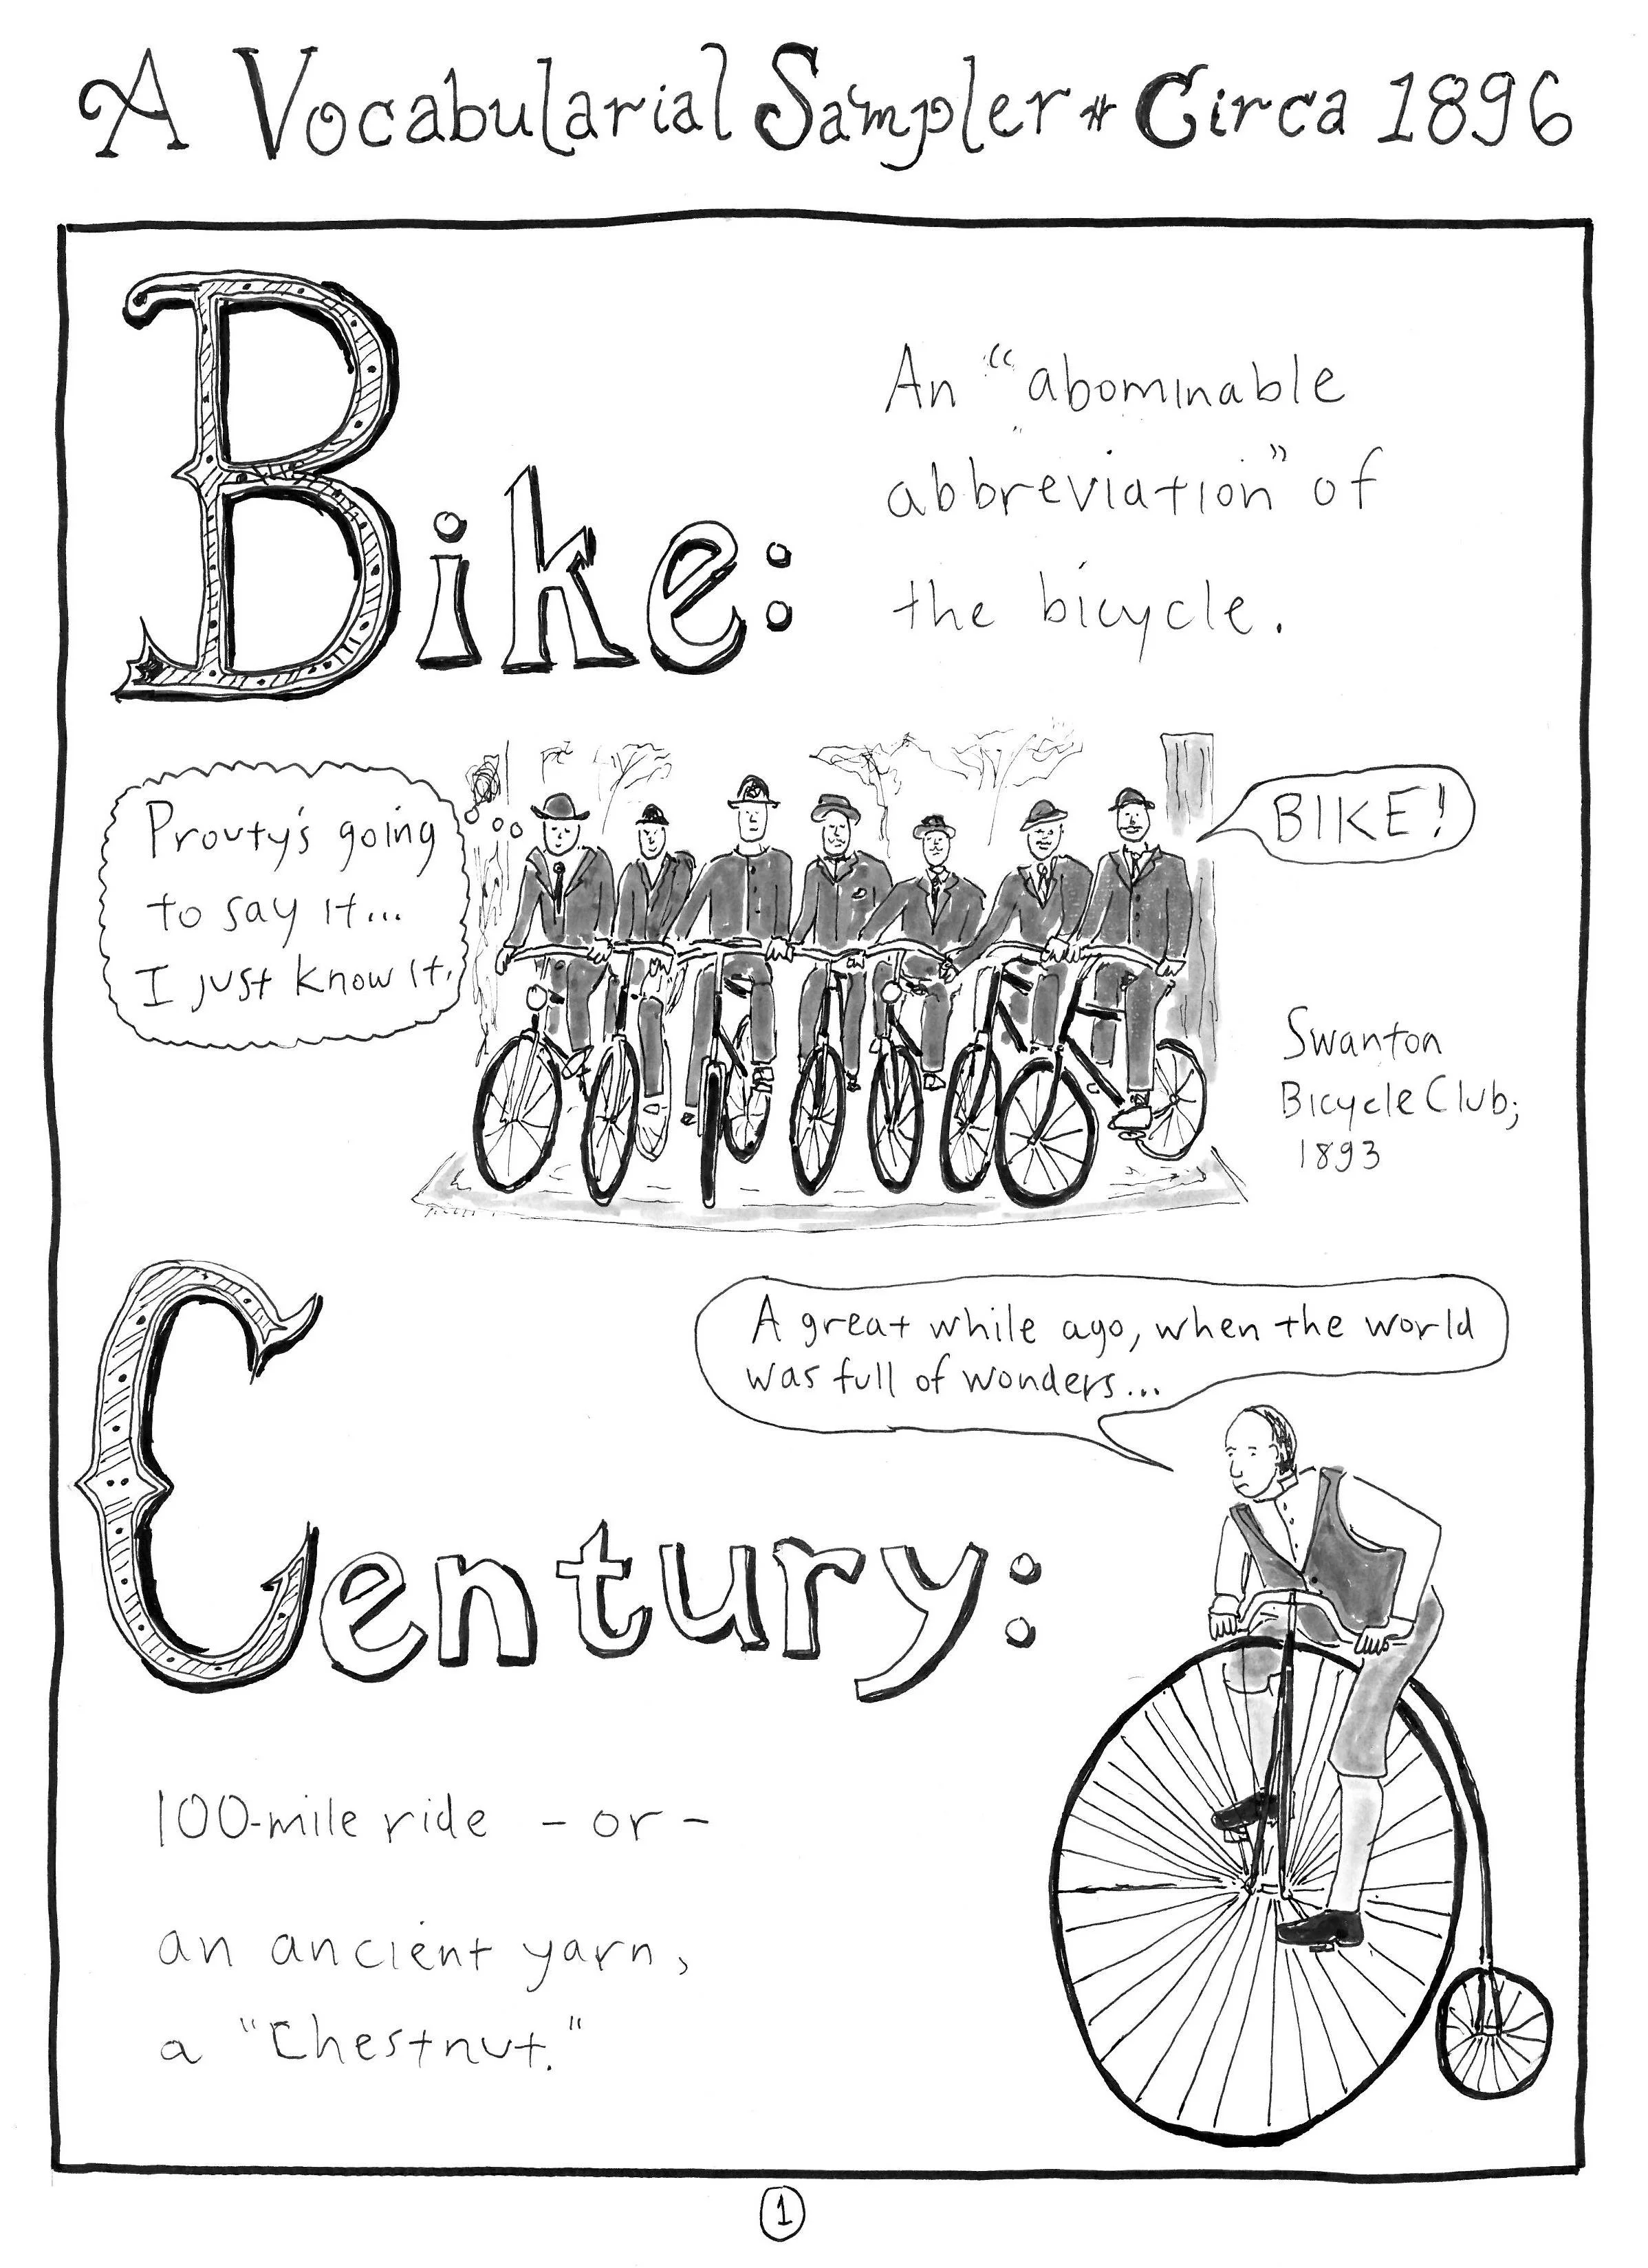 A Vocabularial Sampler * Circa 1896
Bike:
An "abominable
abbreviation" of
the bicycle.
Prouty's going
to say it...
I just know it.
BIKE!
Swanton
Bicycle Club;
1893
A great while ago, when the world
was full of wonders...
Century:
100-mile ride - or -
an ancient yarn,
a "Chestnut."
1